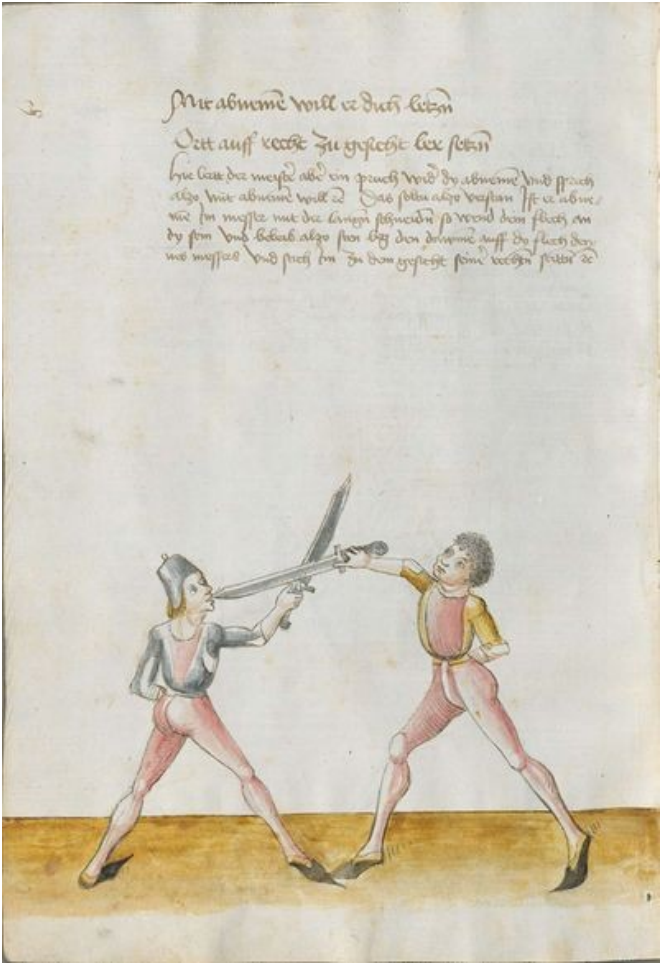 Mit abnemē will er dich letzn̄
Ortt auff recht zu gesicht ler setzn̄
Hie lertt der meister aber ein pruch wider dy abnemē vnd sprich
alzo mit abnemē will er Das soltu alzo verstan Ist er abni-
mt im messer mit der langn̄ schneidn̄ so wend dem flech an
dy sein vnd beleib alzo sten leg den daumē auff dy flech dei-
nes messers vnd stich im zu dem gesicht seiner rechtn̄ seitten